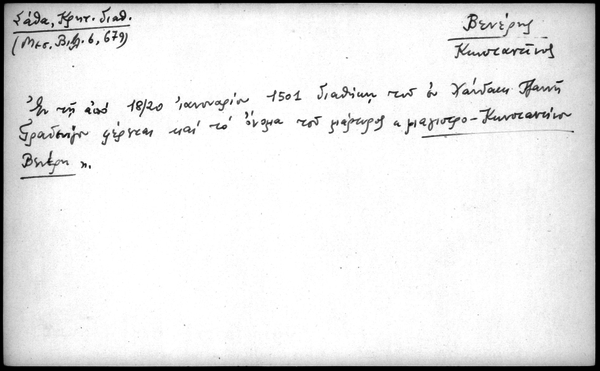 Σάθα, Κρητ. διαθ.
(Μεσ. Βιβ. 6, 679)
Βενέρης
Κωνσταντῖνος
Ἐν τῇ ἀπό 18/20 ἰανουαρίου 1501 διαθήκῃ τοῦ ἐν Χάνδακι Τζαννῆ
Γραδενίγου φέρεται καί τό ὄνομα τοῦ μάρτυρος « μιαγιστρο-Κωνσταντίνου
Βενέρη ».